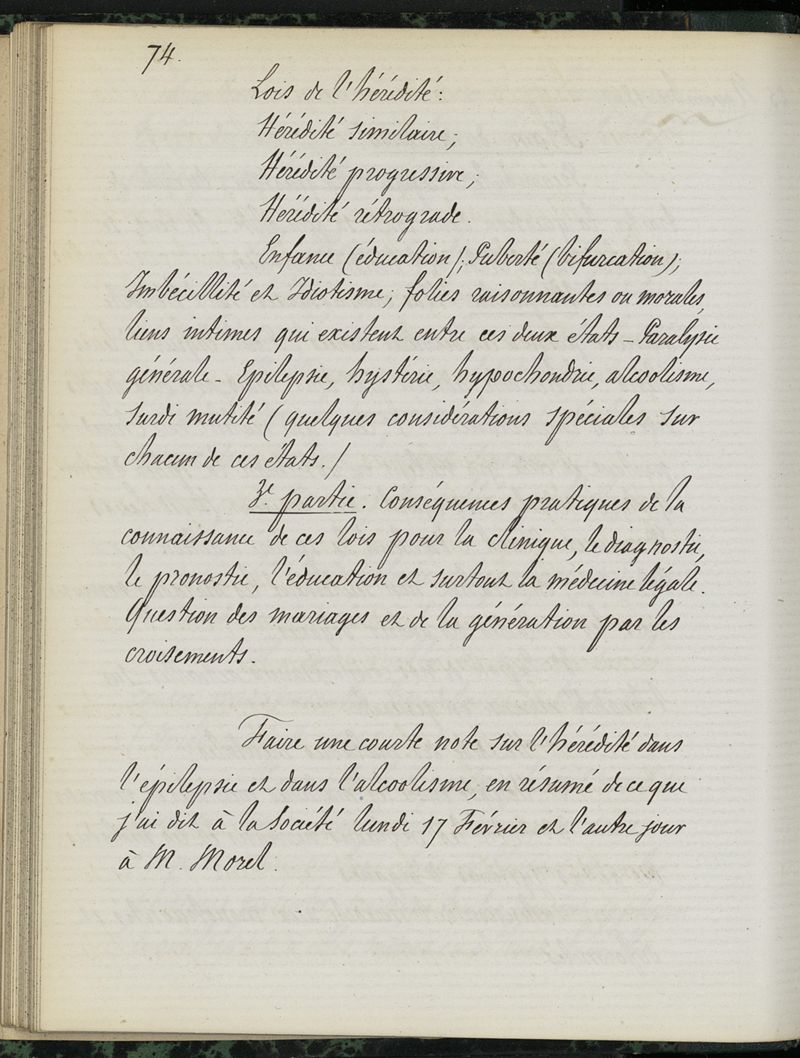 74.
Lois de l'hérédité:
Hérédité similaire;
Hérédité progressive;
Hérédité rétrograde.
Enfance (éducation); Puberté (bifurcation);
Imbécillité et Idiotisme; folies raisonnantes ou morales,
liens intimes qui existent entre ces deux états - Paralysie
générale - Epilepsie, hystérie, hypochondrie, alcoolisme,
surdi mutité (quelques considérations spéciales sur
chacun de ces états.)
3e. partie. Conséquences pratiques de la
connaissance de ces lois pour la clinique, le diagnostic,
le pronostic, l'éducation et surtout la médecine légale.
Question des mariages et de la génération par les
croisements.
Faire une courte note sur l'hérédité dans
l'épilepsie et dans l'alcoolisme, en résumé de ce que
j'ai dit à la Société lundi 17 Février et l'autre jour
à M. Morel.